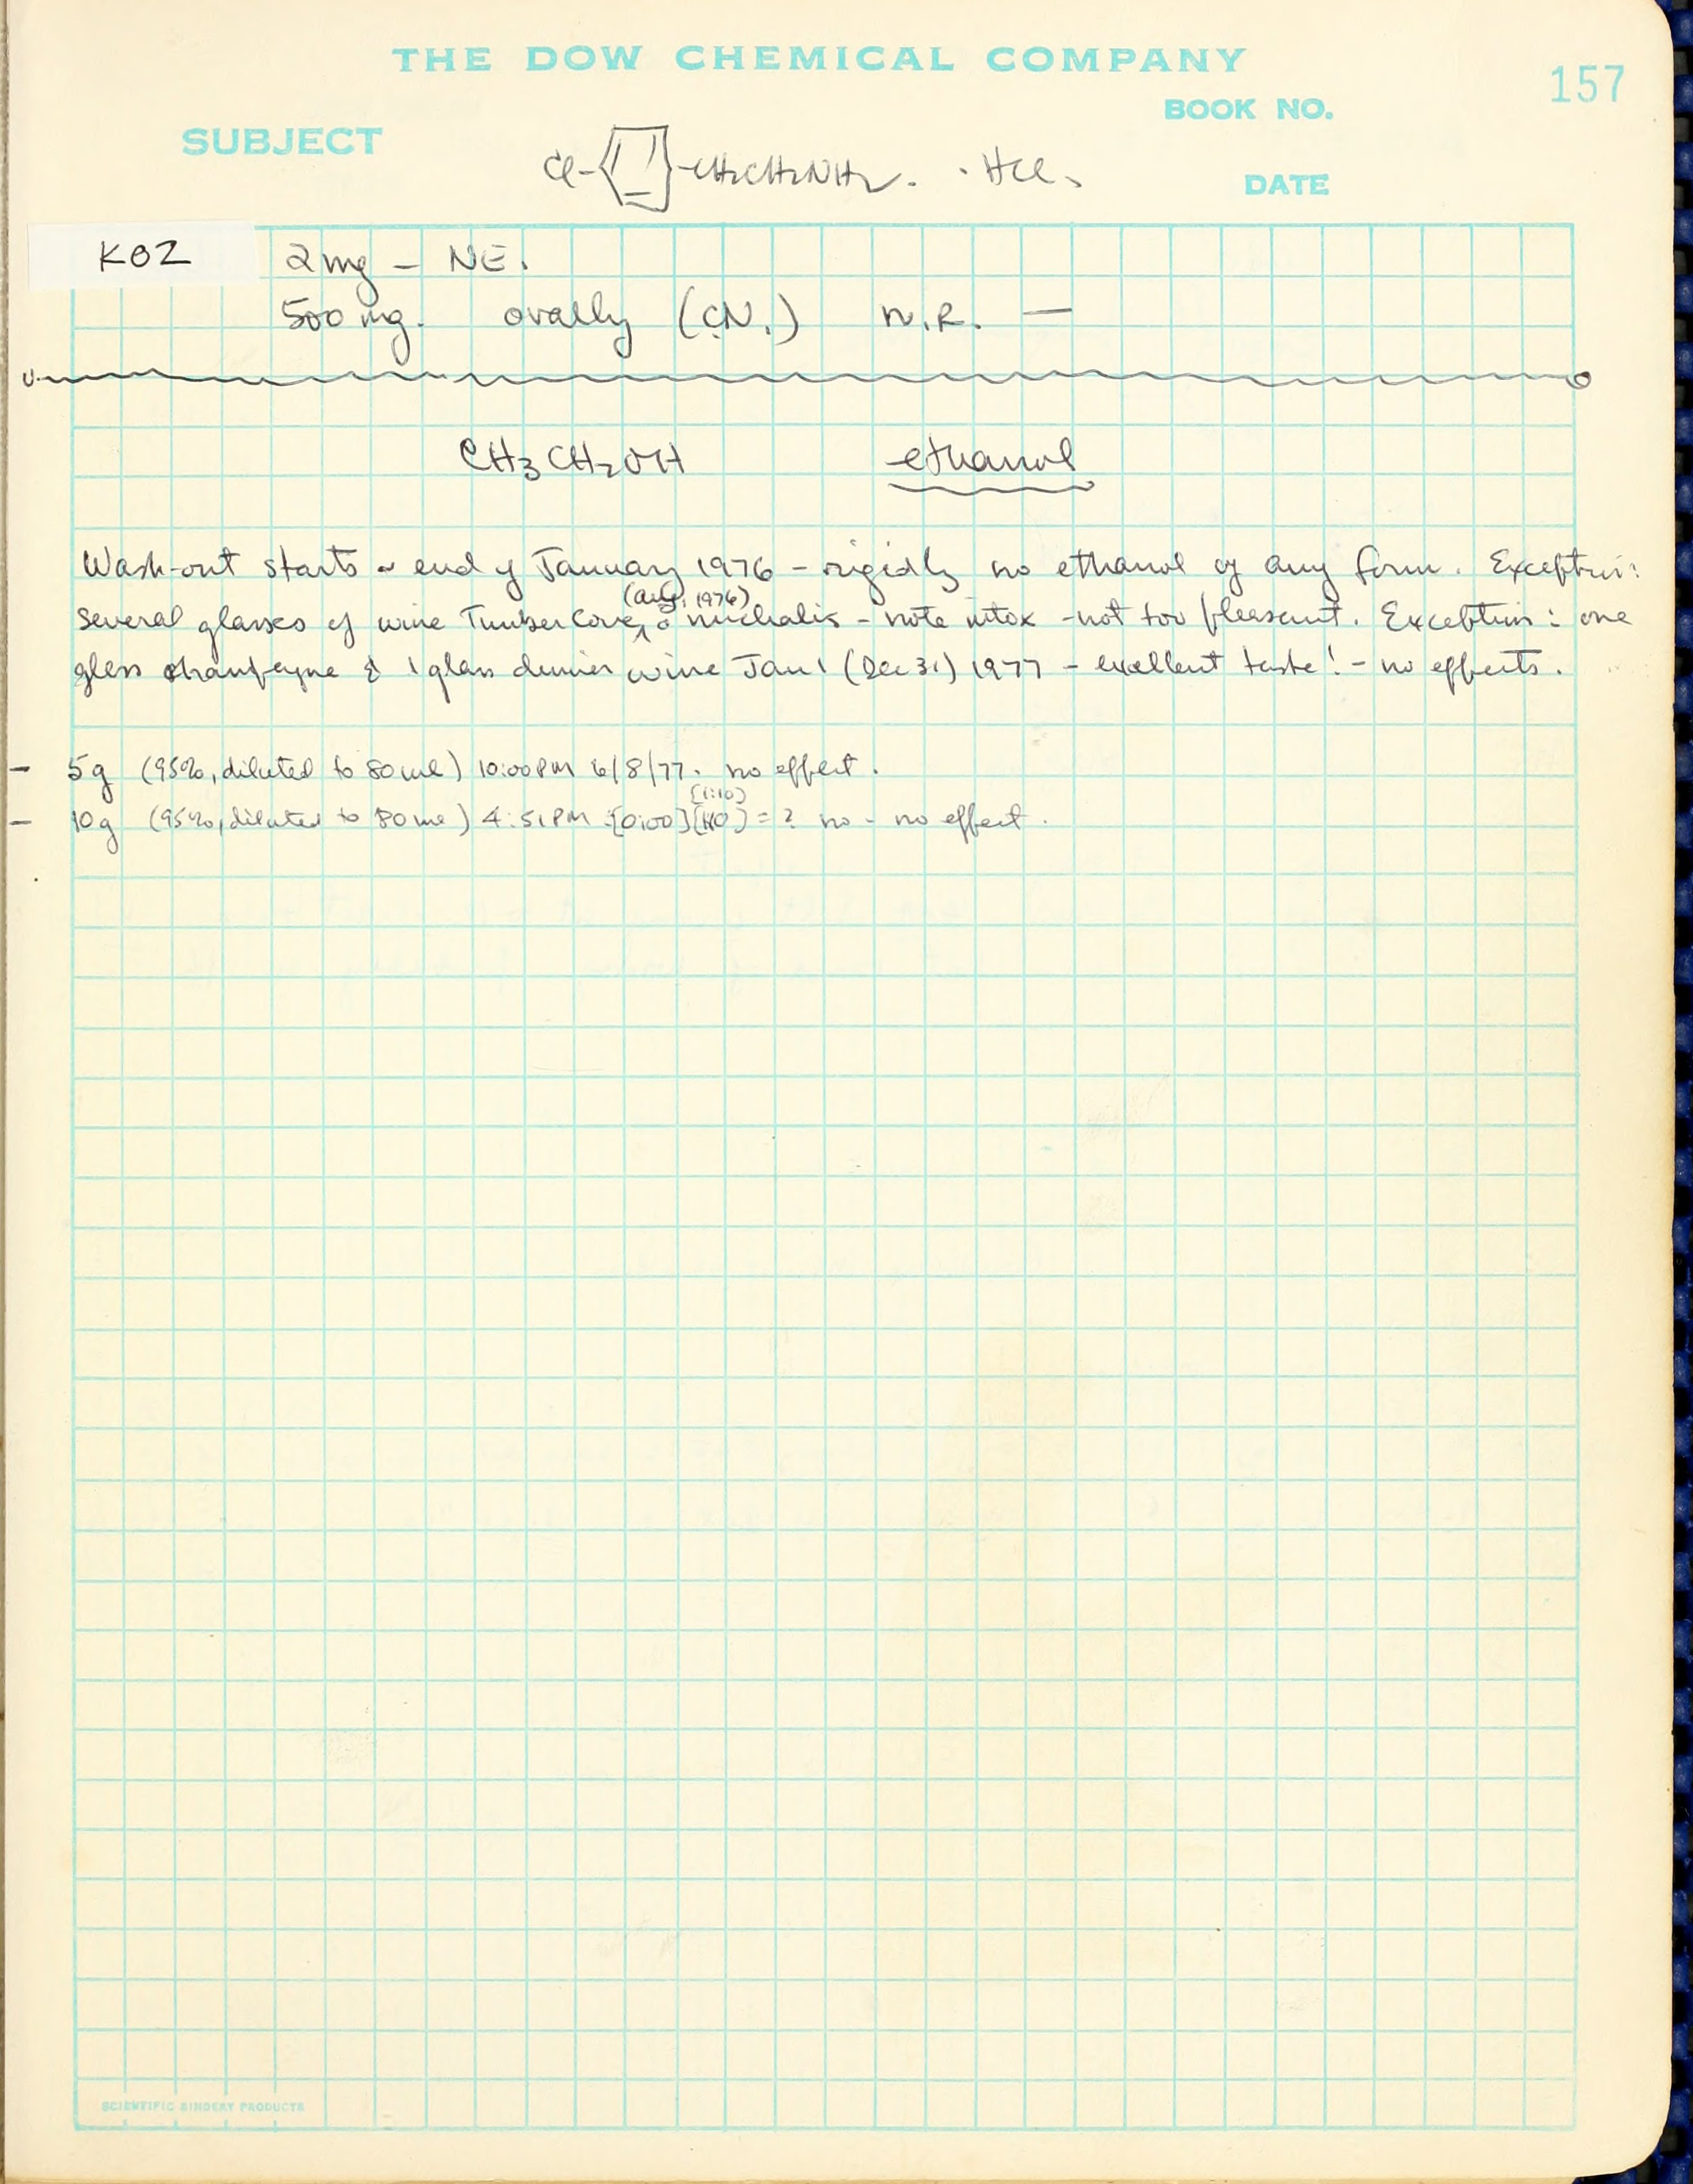 THE DOW CHEMICAL COMPANY
157
BOOK NO.
SUBJECT
Cl- -CH2CH2NH2. · HCl.
DATE
KOZ 2mg - NE.
500 mg. orally (CN.) n.R. —
CH3CH2OH ethanol
Wash-out starts ~ end of January 1976 - rigidly no ethanol of any form. Exception:
(Aug. 1976)
several glasses of wine Timber Cove, michalis - note intox - not too pleasant. Exception: one
glass champagne & 1 glass dinner wine Jan 1 (Dec 31) 1977 - excellent taste! - no effects.
- 5g (95%, diluted to 80ml) 10:00PM 6/8/77. no effect.
[1:10]
- 10g (95%, diluted to 80ml) 4:51PM :[0:00] = ? no - no effect.
SCIENTIFIC BINDERY PRODUCTS